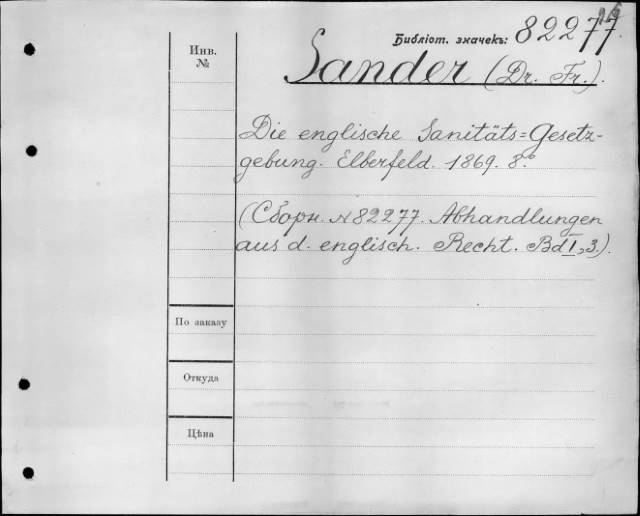 Библіот. значекъ: 82277.
Инв.
№
Sander (Dr. Fr.).
Die englische Sanitäts=Gesetz-
gebung. Elberfeld. 1869. 8.°
(Сборн. N 82277. Abhandlungen
aus d. englisch. Recht. Bd I, 3.).
По заказу
Откуда
Цѣна